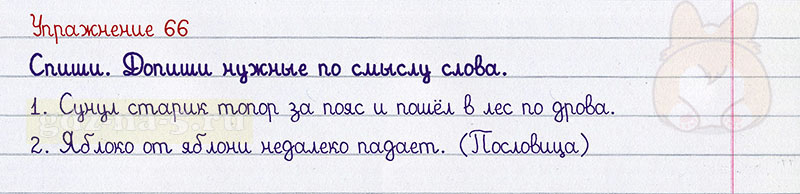 Упражнение 66
Спиши. Допиши нужные по смыслу слова.
1. Сунул старик топор за пояс и пошёл в лес по дрова.
2. Яблоко от яблони недалеко падает. (Пословица)